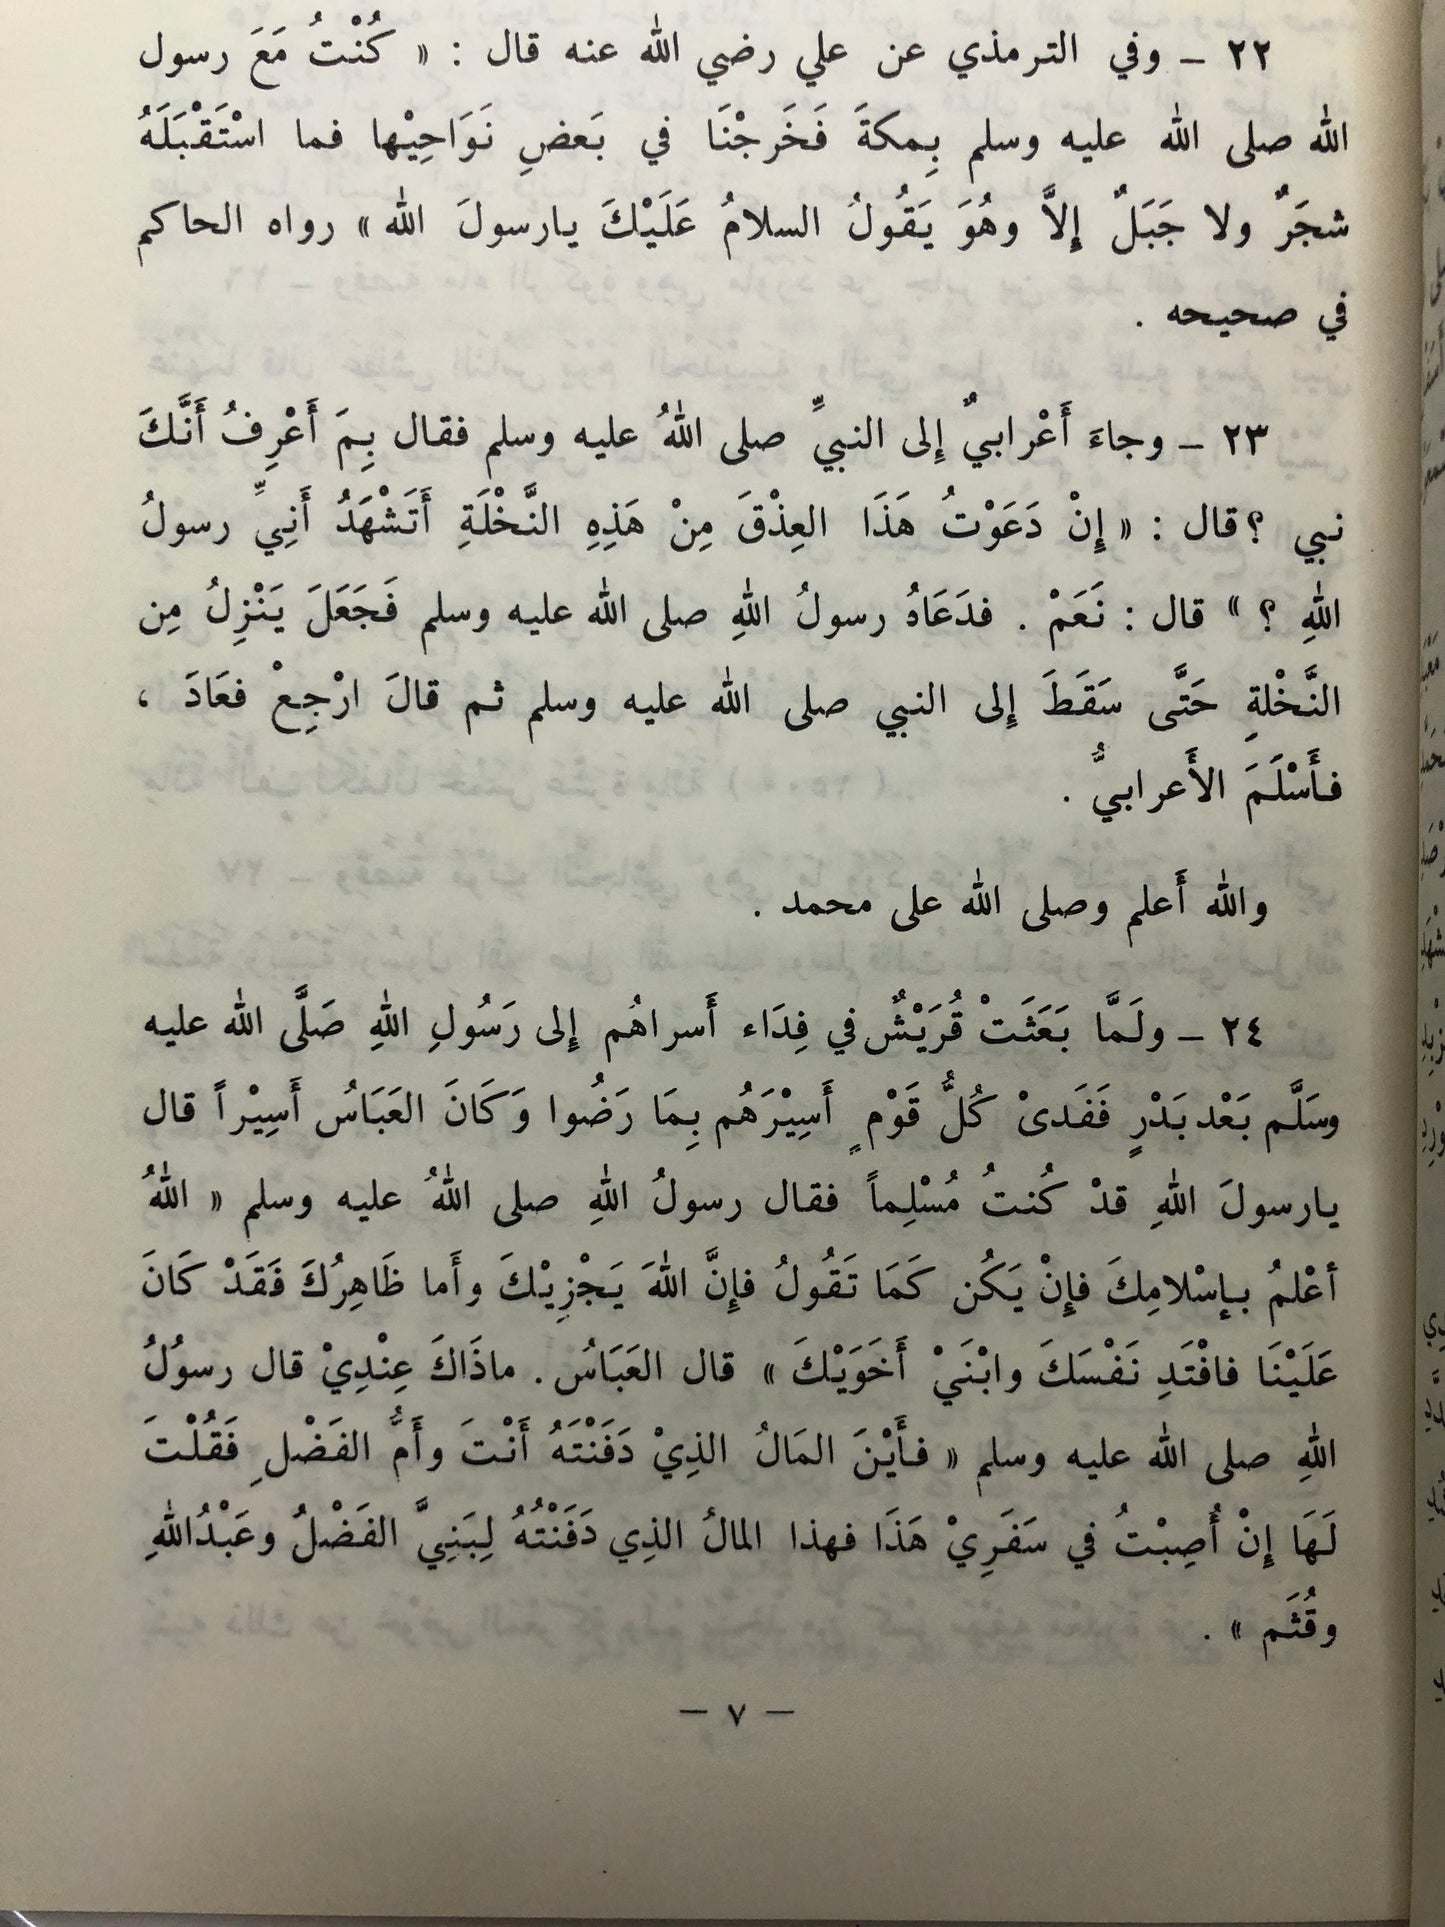 ٢٢ ـ وفي الترمذي عن علي رضي الله عنه قال : « كُنْتُ مَعَ رسول
الله صلى الله عليه وسلم بِمكةَ فَخَرجْنَا في بَعضِ نَوَاحِيْها فما اسْتَقْبَلَهُ
شجَرٌ ولا جَبَلٌ إِلاَّ وهُوَ يَقُولُ السلامُ عَلَيْكَ يارسولَ الله » رواه الحاكم
في صحيحه .
٢٣ ـ وجاءَ أَعْرابيٌ إِلى النبيِّ صلى اللهُ عليه وسلم فقال بِمَ أَعْرِفُ أَنَّكَ
نبي ؟ قال : « إِنْ دَعَوْتُ هَذَا العِذْقَ مِنْ هَذِهِ النَّخْلَةِ أَتَشْهَدُ أَنِيِّ رسولُ
اللهِ ؟ » قال : نَعَمْ . فدَعَاهُ رسولُ اللهِ صلى الله عليه وسلم فَجَعَلَ يَنْزِلُ مِن
النَّخْلةِ حَتَّى سَقَطَ إِلى النبي صلى الله عليه وسلم ثم قالَ ارْجِعْ فعَادَ ،
فأَسْلَمَ الأَعرابيُّ .
والله أَعلم وصلى الله على محمد .
٢٤ ـ ولَمَّا بَعَثَتْ قُرَيْشٌ في فِدَاء أَسراهُم إِلى رَسُولِ اللهِ صَلَّى الله عليه
وسَلَّم بَعْد بَدْرٍ فَفَدىْ كُلُّ قَوْمٍ أَسِيْرَهُم بِمَا رَضُوا وَكَانَ العَبَاسُ أَسِيْراً قال
يارسولَ اللهِ قدْ كُنتُ مُسْلِماً فقال رسولُ اللهِ صلى اللهُ عليه وسلم « اللهُ
أعْلمُ بإِسْلامِكَ فإِنْ يَكُن كَمَا تَقُولُ فإِنَّ اللهَ يَجْزِيْكَ وأَما ظَاهِرُكَ فَقَدْ كَانَ
عَلَيْنَا فافْتَدِ نَفْسَكَ وابْنَيْ أَخَوَيْكَ » قال العَبَاسُ . ماذَاكَ عِنْدِيْ قال رسوُلُ
اللهِ صلى الله عليه وسلم « فأَيْنَ المَالُ الذِيْ دَفَنْتَهُ أَنْتَ وأَمُّ الفَضْلِ فَقُلْتَ
لَهَا إِنْ أُصِبْتُ في سَفَرِيْ هَذَا فهذا المالُ الذِي دَفَنْتُهُ لِبَنِيَّ الفَضْلُ وعَبْدُاللهِ
وقُثَم » .
ـ ٧ ـ